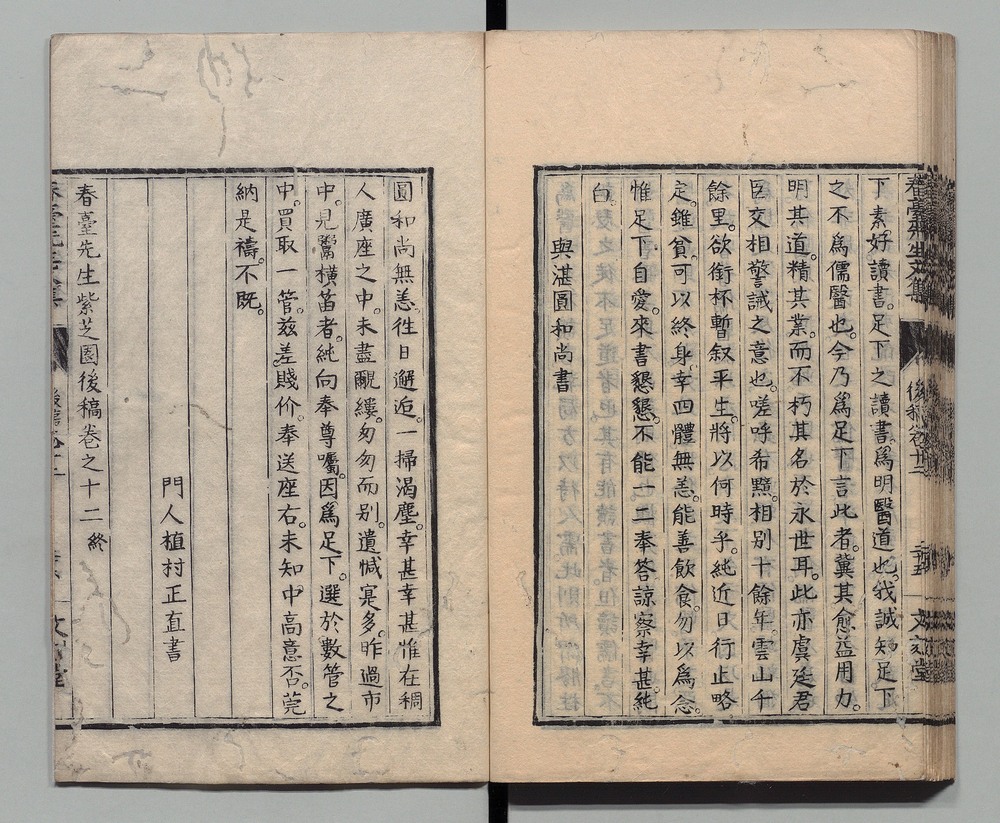 下素好讀書。足下之讀書。爲明醫道也。我誠知足下
之不爲儒醫也。今乃爲足下言此者。冀其愈益用力。
明其道。精其業。而不朽其名於永世耳。此亦虞廷君
臣交相警誡之意也。嗟呼希黯。相別十餘年。雲山千
餘里。欲銜杯暫叙平生。將以何時乎。純近日行止略
定。雖貧。可以終身。幸四體無恙。能善飲食。勿以爲念。
惟足下自愛。來書懇懇。不能一二奉答。諒察幸甚。純
白。
與湛圓和尚書
圓和尚無恙。徃日邂逅。一掃渴塵。幸甚幸甚。惟在稠
人廣座之中。未盡覼縷。匆匆而別。遺憾寔多。昨過市
中。見鬻橫笛者。純向奉尊囑。因爲足下。選於數管之
中。買取一管。茲差賤价。奉送座右。未知中高意否。莞
納是禱。不旣。
門人植村正直書
春臺先生紫芝園後稿卷之十二終